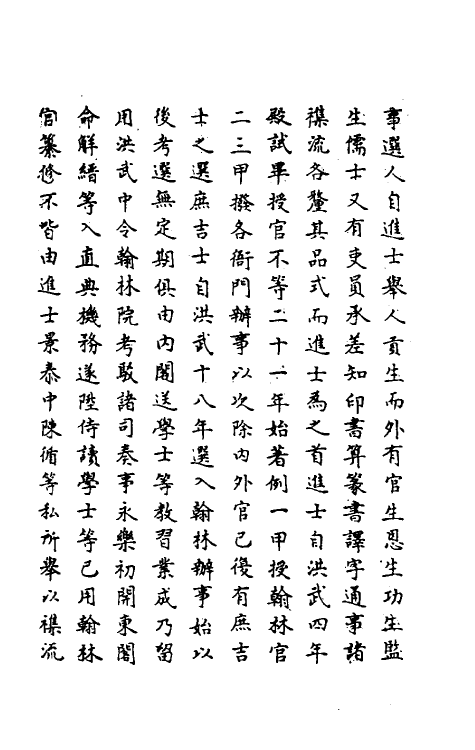 事選人自進士舉人貢生而外有官生恩生功生監
生儒士又有吏員承差知印書算篆書譯字通事諸
襍流各釐其品式而進士為之首進士自洪武四年
殿試畢授官不等二十一年始著例一甲授翰林官
二三甲撥各衙門辦事以次除內外官已後有庶吉
士之選庶吉士自洪武十八年選入翰林辦事始以
後考選無定期俱由內閣送學士等教習業成乃留
用洪武中令翰林院考駁諸司奏事永樂初開東閣
命解縉等入直典機務遂陞侍讀學士等已用翰林
官纂修不皆由進士景泰中陳循等私所舉以襍流